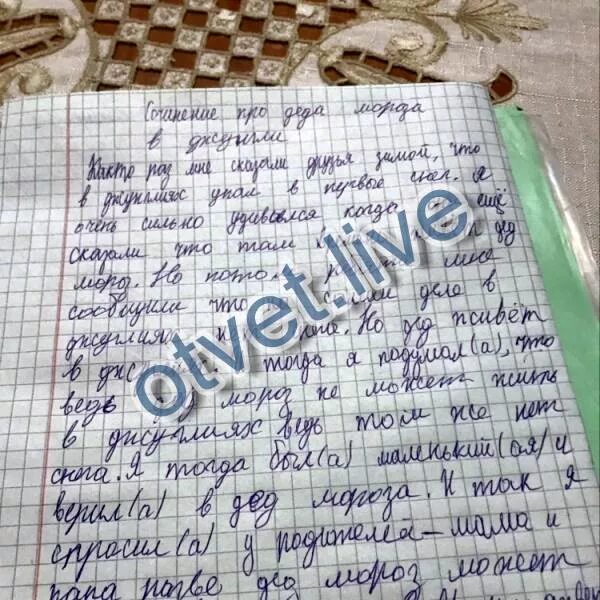 Сочинение про деда мороза
в джунгли
Както раз мне сказали друзья зимой, что
в джунглиях упал в первые снег. Я
очень сильно удивился когда ещё
сказали что там дед
мороз. Но мне
сообщили что на самом деле в
джунглиях Но дед живёт
в тогда я подумал(а), что
ведь дед мороз не может жить
в джунглиях ведь том же нет
снега. Я тогда был(а) маленький(ая) и
верил(а) в дед мороза. И так я
спросил(а) у родителей - мама и
папа разве дед мороз может
otvet.live